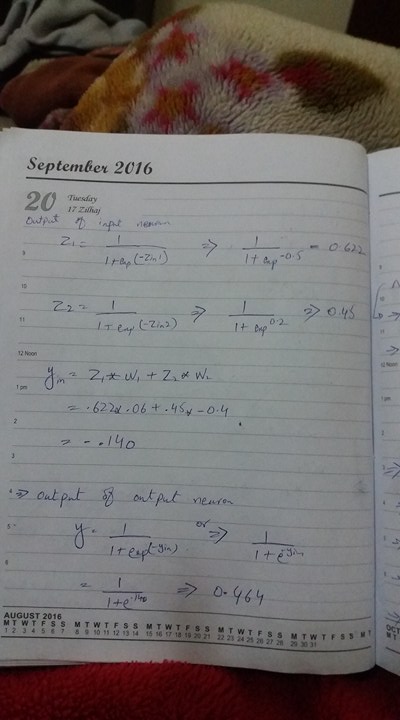 September 2016
20 Tuesday
17 Zilhaj
Output of input neuron
Z1 = 1/(1+exp(-Zin1)) => 1/(1+exp-0.5) = 0.622
Z2 = 1/(1+exp(-Zin2)) => 1/(1+exp0.2) => 0.45
yin = Z1*W1 + Z2*W2
= .622*.06 + .45*-0.4
= -.140
=> output of output neuron
y = 1/(1+exp(-yin)) or => 1/(1+e-yin)
= 1/(1+e.140) => 0.464
9
10
11
12 Noon
1 pm
2
3
4
5
6
AUGUST 2016
M T W T F S S M T W T F S S M T W T F S S M T W T F S S M T W
1 2 3 4 5 6 7 8 9 10 11 12 13 14 15 16 17 18 19 20 21 22 23 24 25 26 27 28 29 30 31